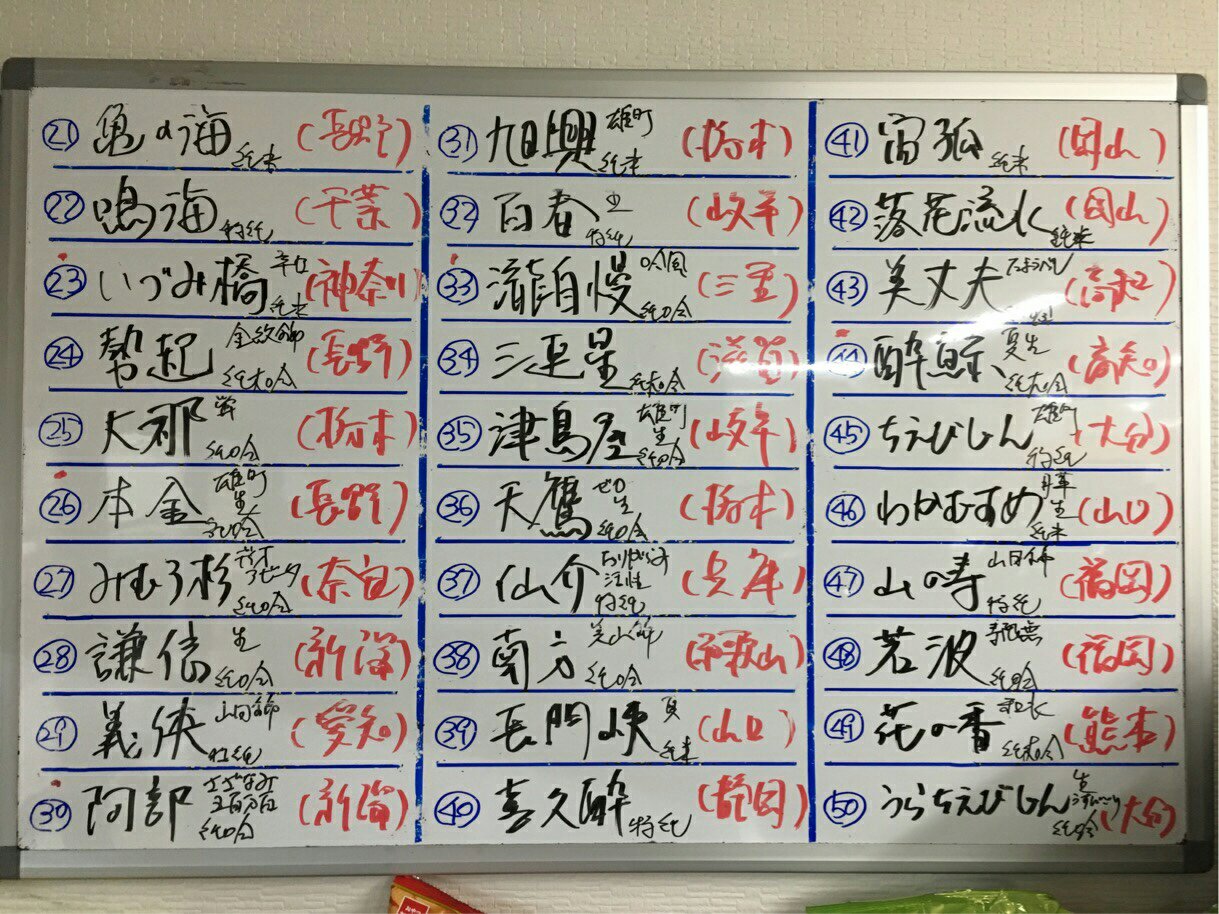 ㉑ 亀の海 純米 (長野)
㉒ 鳴海 特純 (千葉)
㉓ いづみ橋 辛口 純米 (神奈川)
㉔ 勢起 金紋錦 純大吟 (長野)
㉕ 大那 蛍 純吟 (栃木)
㉖ 本金 雄町 生 純吟 (長野)
㉗ みむろ杉 純吟 (奈良)
㉘ 謙信 生 純吟 (新潟)
㉙ 義侠 山田錦 特純 (愛知)
㉚ 阿部 さざなみ 五百万石 純吟 (新潟)
㉛ 旭興 雄町 純米 (栃木)
㉜ 百春 特純 (岐阜)
㉝ 瀧自慢 純吟 (三重)
㉞ 三連星 純大吟 (滋賀)
㉟ 津島屋 雄町 生 純吟 (岐阜)
㊱ 天鷹 ゼロ 生 純吟 (栃木)
㊲ 仙介 おりがらみ 活性 特純 (兵庫)
㊳ 南方 美山錦 純吟 (和歌山)
㊴ 長門峡 夏 純米 (山口)
㊵ 喜久酔 特純 (静岡)
㊶ 宙狐 純米 (岡山)
㊷ 落花流水 純米 (岡山)
㊸ 美丈夫 (高知)
㊹ 酔鯨 夏生 純大吟 (高知)
㊺ ちえびじん 雄町 特純 (大分)
㊻ わかむすめ 生 純米 (山口)
㊼ 山の寿 山田錦 特純 (福岡)
㊽ 若波 純吟 (福岡)
㊾ 花の香 和水 純大吟 (熊本)
㊿ うらちえびじん 生 純吟 (大分)